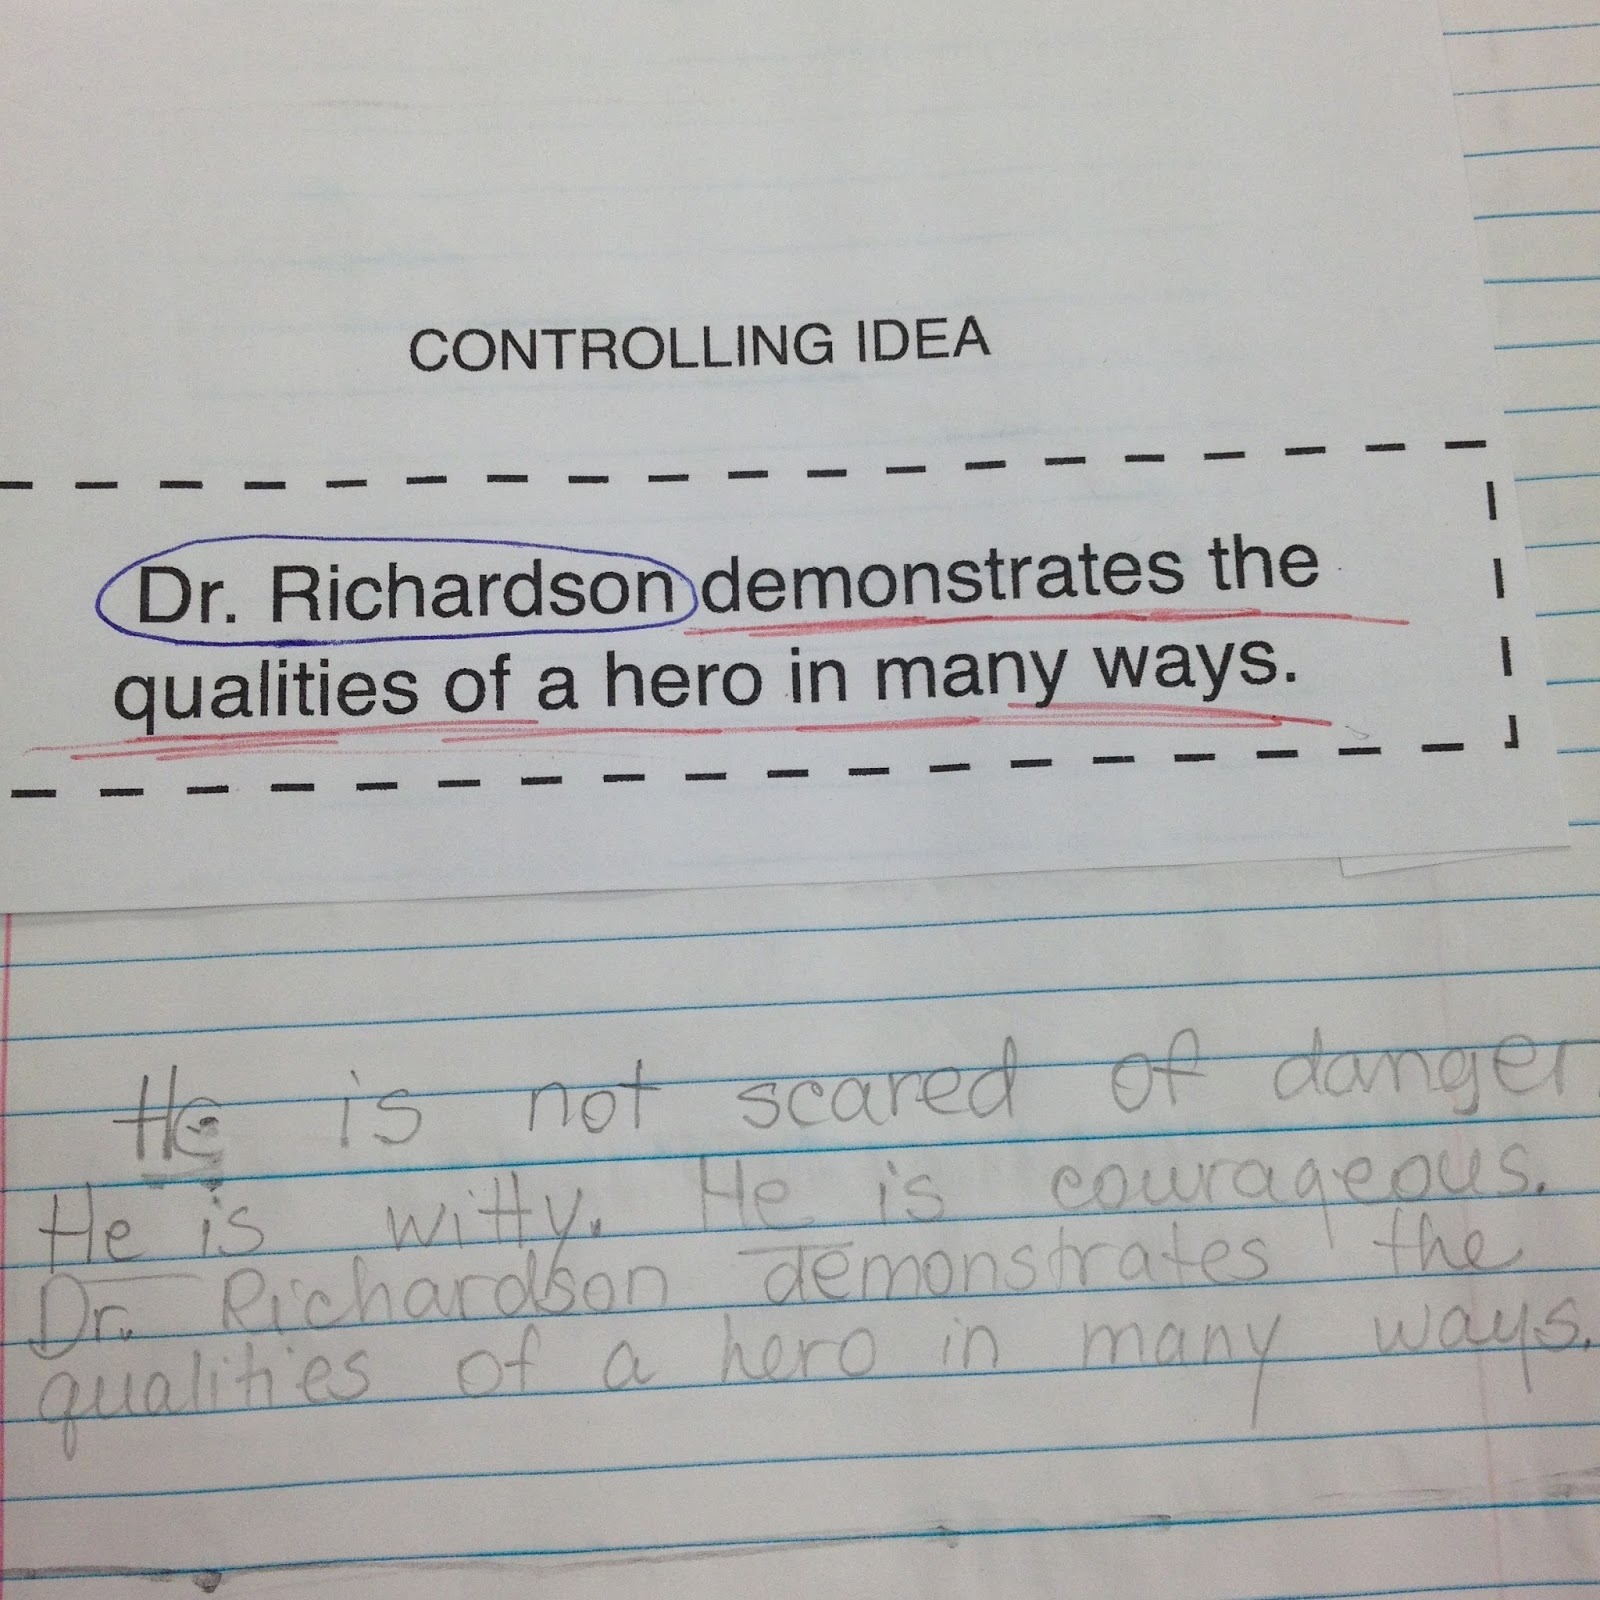 CONTROLLING IDEA
Dr. Richardson demonstrates the
qualities of a hero in many ways.
He is not scared of danger.
He is witty. He is courageous.
Dr. Richardson demonstrates the
qualities of a hero in many ways.